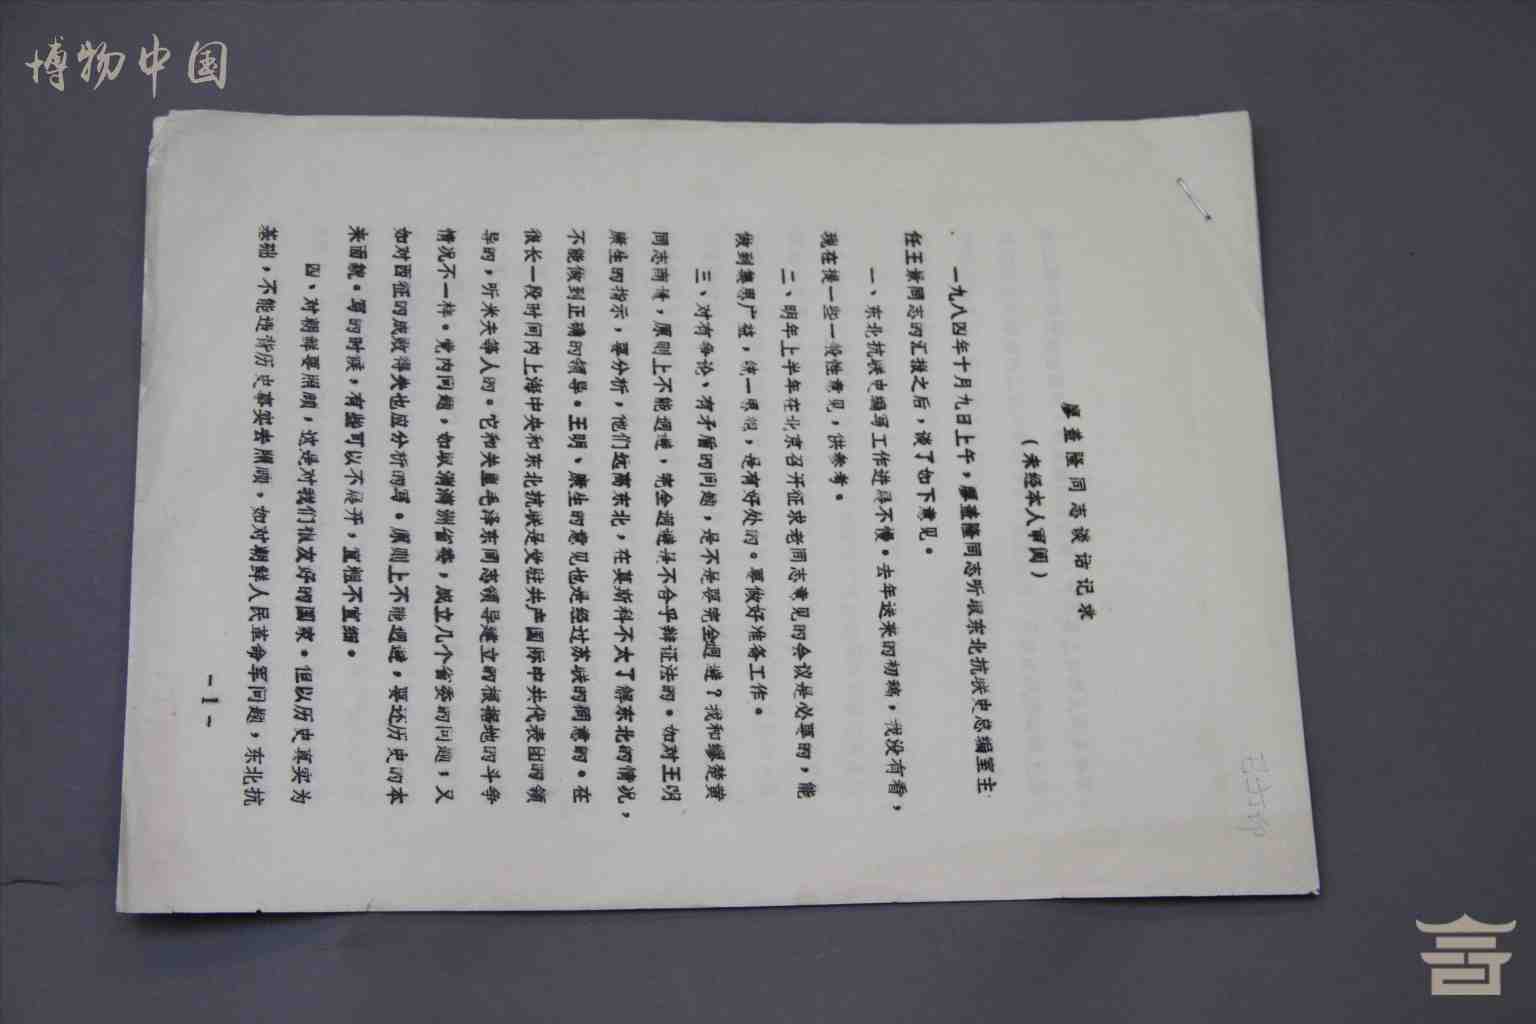 博物中国
韩光隆同志谈话记录
(未经本人审阅)
一九八四年十月九日上午,同志听取东北抗联史总编室主
任王景同志的汇报之后,谈了如下意见。
一、东北抗联史编写工作进得不慢。去年送来的初稿,我没有看,
现在提一些一般性意见,供参考。
二、明年上半年在北京召开征求老同志意见的会议是必要的,能
做到集思广益,统一思想,是有好处的。要做好准备工作。
三、对有争论、有矛盾的问题,是不是要完全回避?我和缪楚黄
同志商量,原则上不能回避,完全回避是不合乎辩证法的。如对王明
康生的指示,要分析,他们远离东北,在莫斯科不大了解东北的情况,
不能做到正确的领导。王明、康生的意见也是经过苏联的同意的。在
很长一段时间内上海中央和东北抗联是受驻共产国际中共代表团的领
导的,听米夫等人的。它和关里毛泽东同志领导建立的根据地的斗争
情况不一样。党内问题,如取消满洲省委,成立几个省委的问题,又
如对西征的成败得失也应分析的写。原则上不能回避,要还历史的本
来面貌。写的时候,有些可以不展开,宜粗不宜细。
四、对朝鲜要照顾,这是对我们很友好的国家。但以历史真实为
基础,不能违背历史事实去照顾,如对朝鲜人民革命军问题,东北抗
-1-
已打印